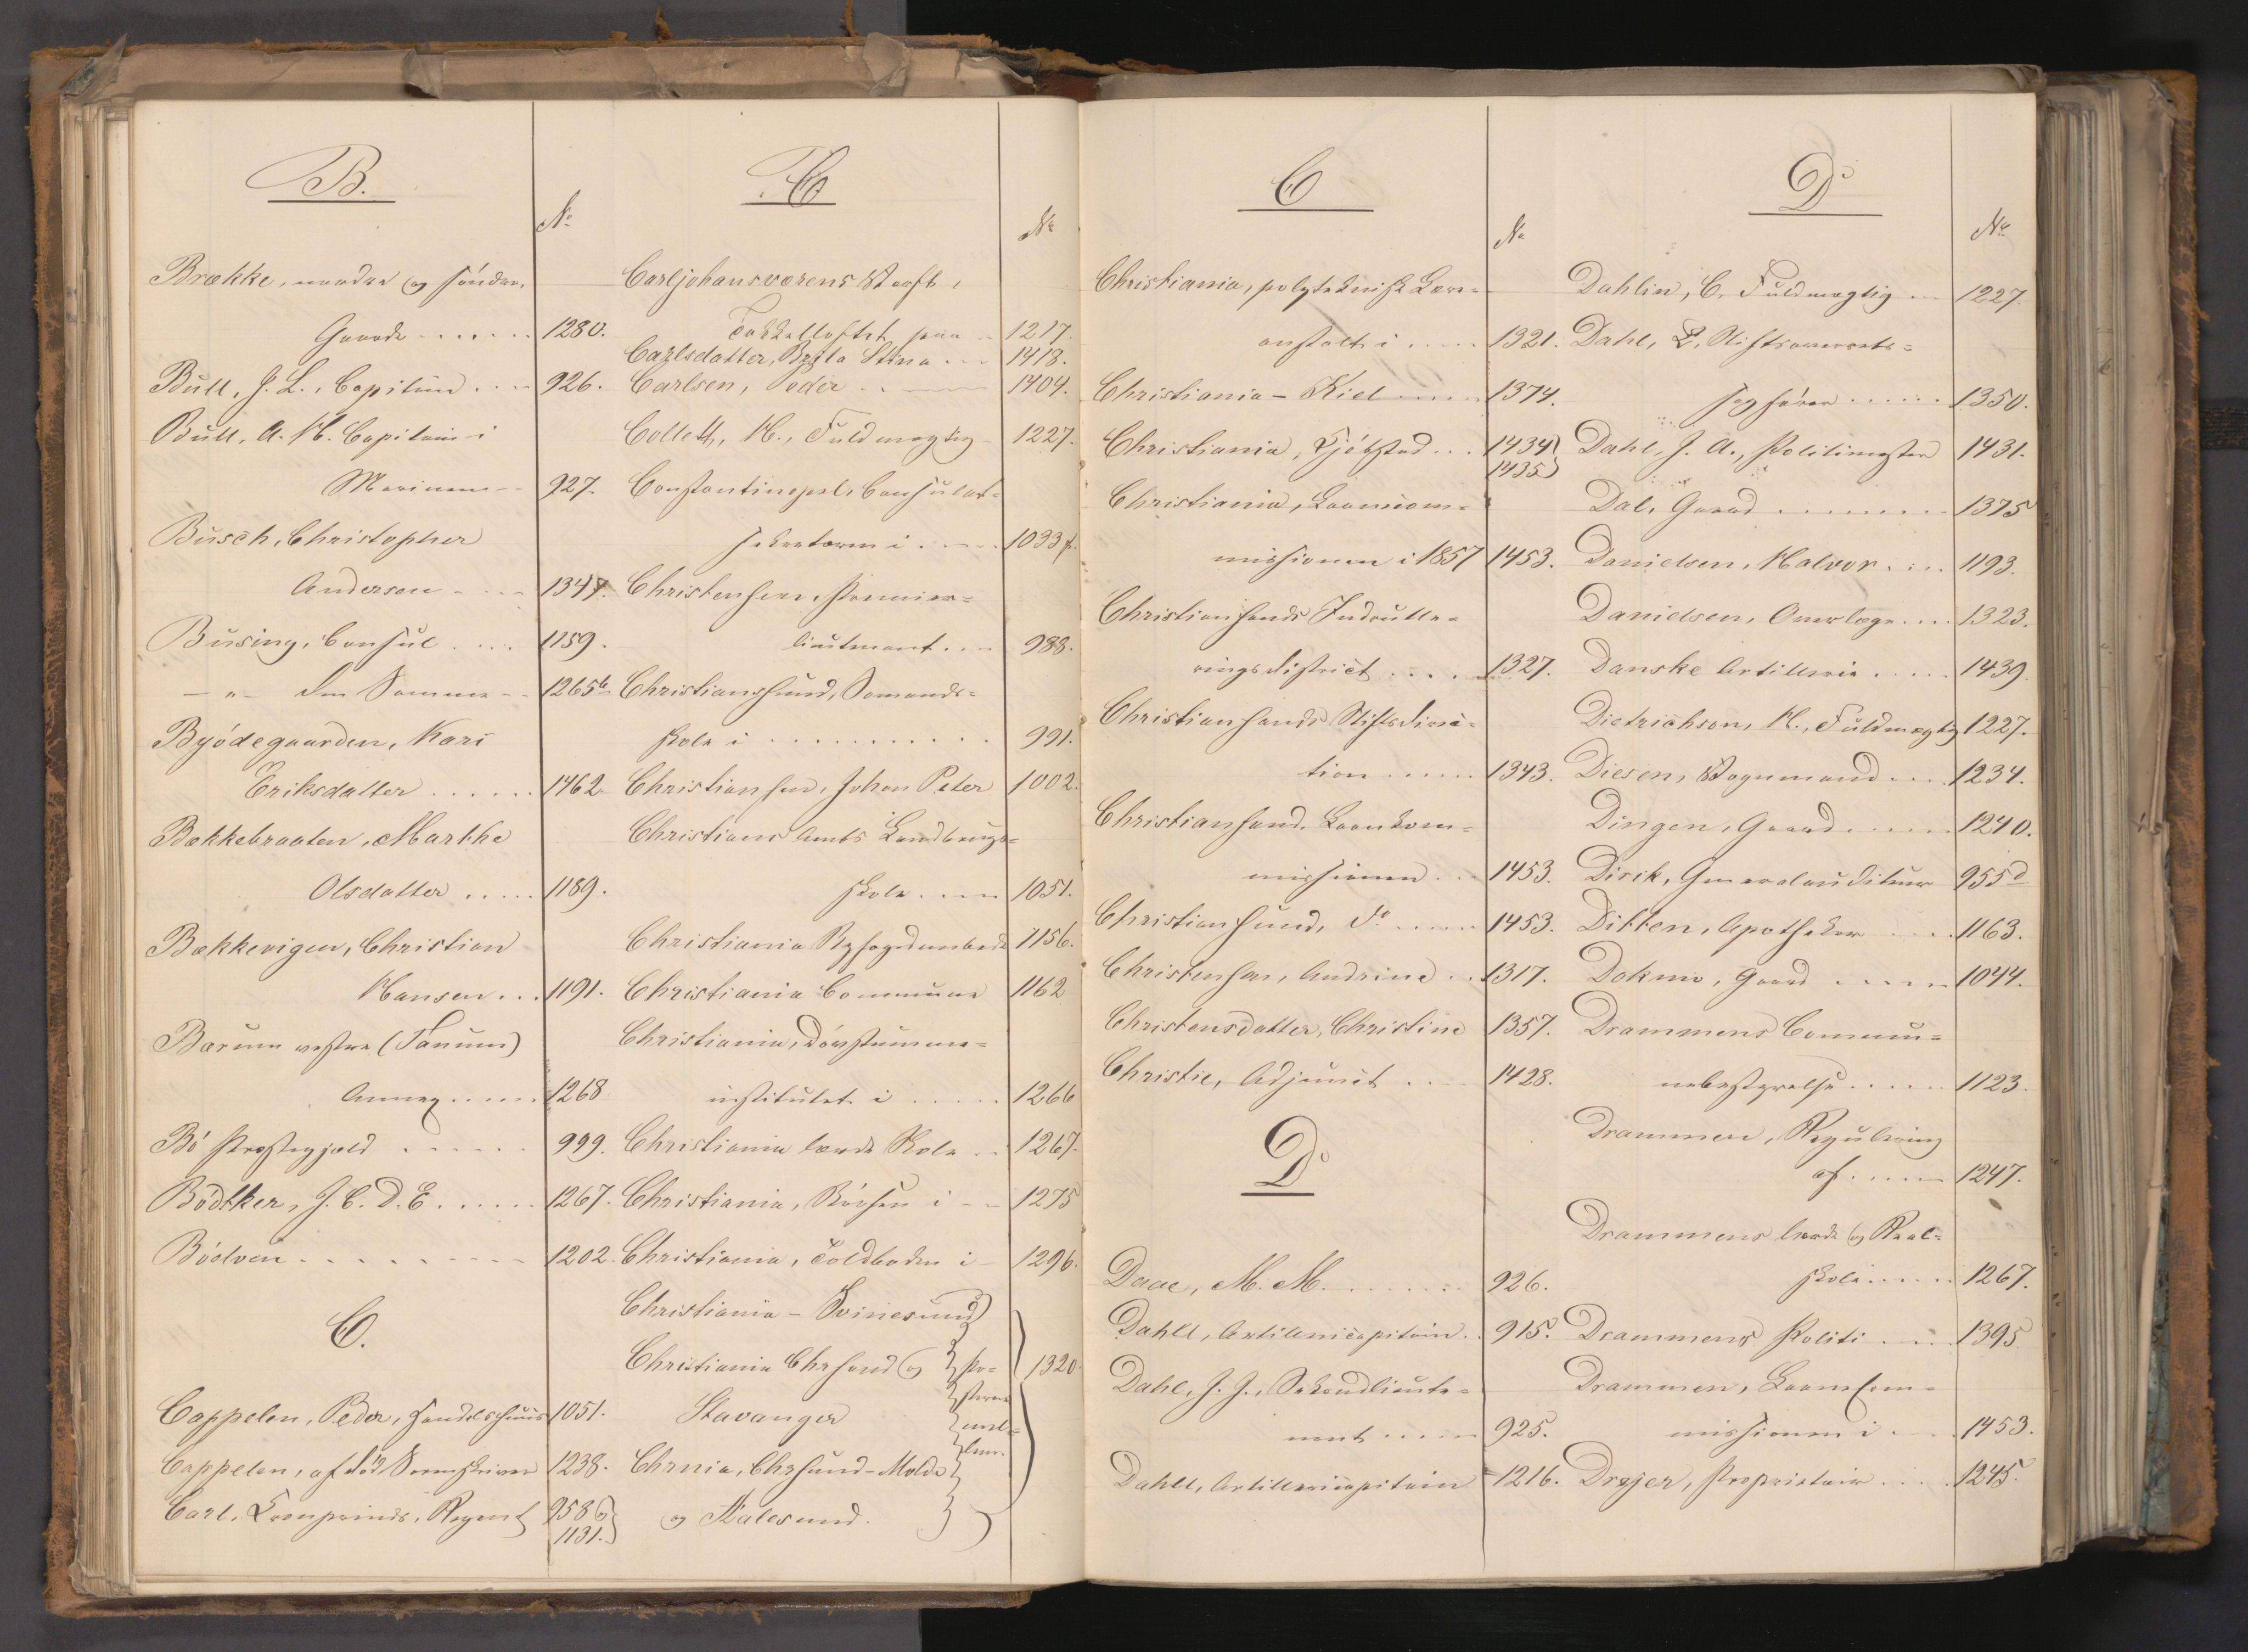 B.
No
Brække, nordre og söndre,
Gaarde 1280.
Bull, J. L., Capitain 926.
Bull, A. H. Capitain i
Marinen 927.
Busch, Christopher
Andersen 1347.
Büsing, Consul 1159.
—„— den Samme 1265b
Byödegaarden, Kari
Eriksdatter 1462.
Bækkebraaten, Marthe
Olsdatter 1189.
Bækkevigen, Christian
Hansen 1191.
Bærum vestre (Tanum)
Annex 1268
Bö Præstegjæld 999.
Bödtker, J. C. D. E. 1267.
Böelven 1202.
C.
Cappelen, Peder, Handelshuus 1051.
Cappelen, afdöd Sorenskriver 1238.
Carl, Kronprinds, Regent 958 og
1131.
C
No
Carljohansværens Værft,
Takkelloftet paa 1217.
Carlsdatter, Brita Stina 1418.
Carlsen, Peder 1404.
Collett, H., Fuldmægtig 1227.
Constantinopel, Consulat-
sekretæren i 1033 f.
Christensen, Premier-
lieutenant 988.
Christianssund, Sømands-
skole i 991.
Christiansen, Johan Peter 1002.
Christians Amts Landbrugs-
skole 1051.
Christiania Byfogdembede 1156.
Christiania Commune 1162
Christiania, Dövstumme-
institutet i 1266
Christiania lærde Skole 1267.
Christiania, Börsen i 1275
Christiania, Toldboden i 1296.
Christiania - Svinesund
Christiania Chrsand og
Stavanger
Chrnia, Chrsund - Molde
og Aalesund.
1320.
C
No
Christiania, polyteknisk Lære-
anstalt i 1321.
Christiania - Kiel 1374.
Christiania, Kjöbstad 1434
1435
Christiania, Laanecom-
missionen i 1857 1453.
Christiansands Indrulle-
ringsdistrict 1327.
Christiansands Stiftsdirec-
tion 1343.
Christiansand, Laanekom-
missionen 1453.
Christianssund, do 1453.
Christensen, Andrine 1317.
Christensdatter, Christine 1357.
Christie, Adjunct 1428.
D.
Daae, M. M. 926.
Dahll, Artillericapitain 915.
Dahl, J. J., Sekondlieute-
nant 925.
Dahll, Artillericapitain 1216.
D.
No
Dahlin, C. Fuldmægtig 1227.
Dahl, L. Stiftsoverrets-
sagförer 1350.
Dahl, J. A., Politimester 1431.
Dal, Gaard 1375
Danielsen, Halvor 1193.
Danielsen, Overlæge 1323.
Danske Artilleri 1439.
Dietrichson, H., Fuldmægtig 1227.
Diesen, Vognmand 1234.
Dingen, Gaard 1240.
Dirik, Generalauditeur 955d
Ditten, Apotheker 1163.
Dokmo, Gaard 1044.
Drammens Commu-
nebestyrelse 1123.
Drammen, Regulering
af 1247.
Drammens lærde og Real-
skole 1267.
Drammens Politi 1395.
Drammen, Laanekom-
missionen i 1453.
Drejer, Proprietair 1245.